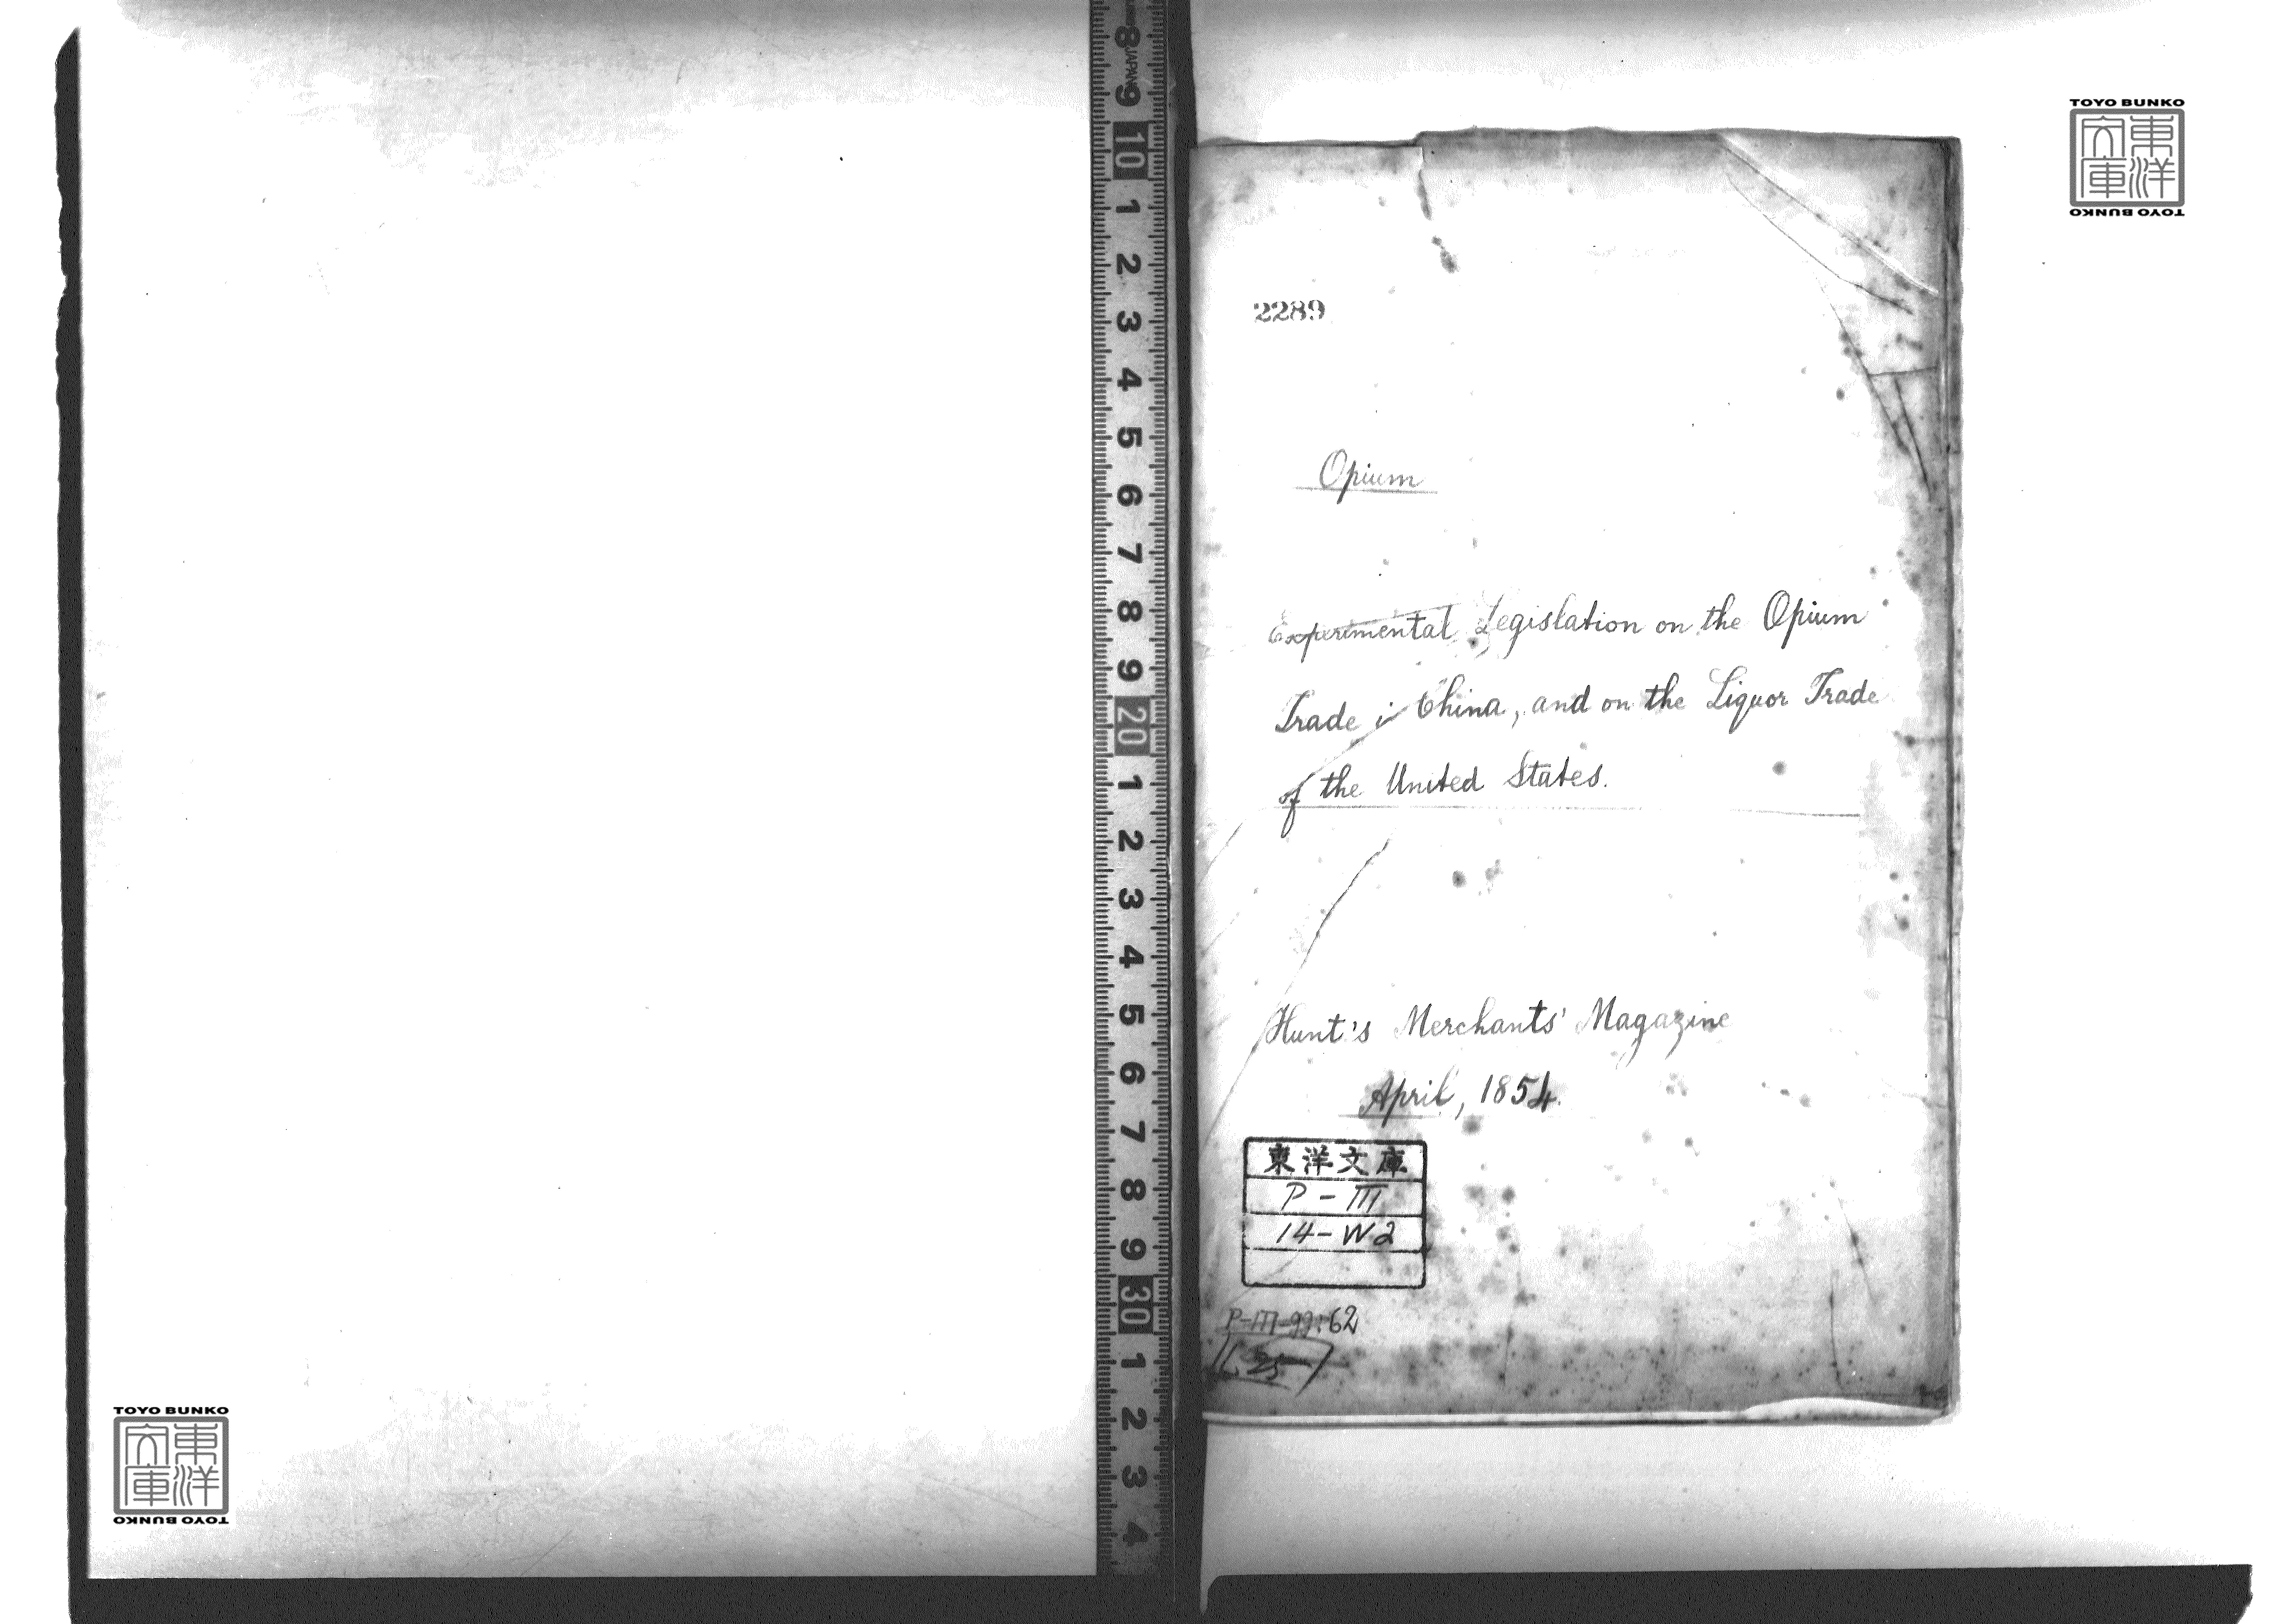 JAPAN
8
9
10
1
2
3
4
5
6
7
8
9
20
1
2
3
4
5
6
7
8
9
30
1
2
3
4
TOYO BUNKO
東洋文庫
TOYO BUNKO
2289
Opium
Experimental Legislation on the Opium
Trade in China, and on the Liquor Trade
of the United States.
Hunt's Merchants' Magazine
April, 1854.
東洋文庫
P-III
14-W2
62
TOYO BUNKO
東洋文庫
TOYO BUNKO